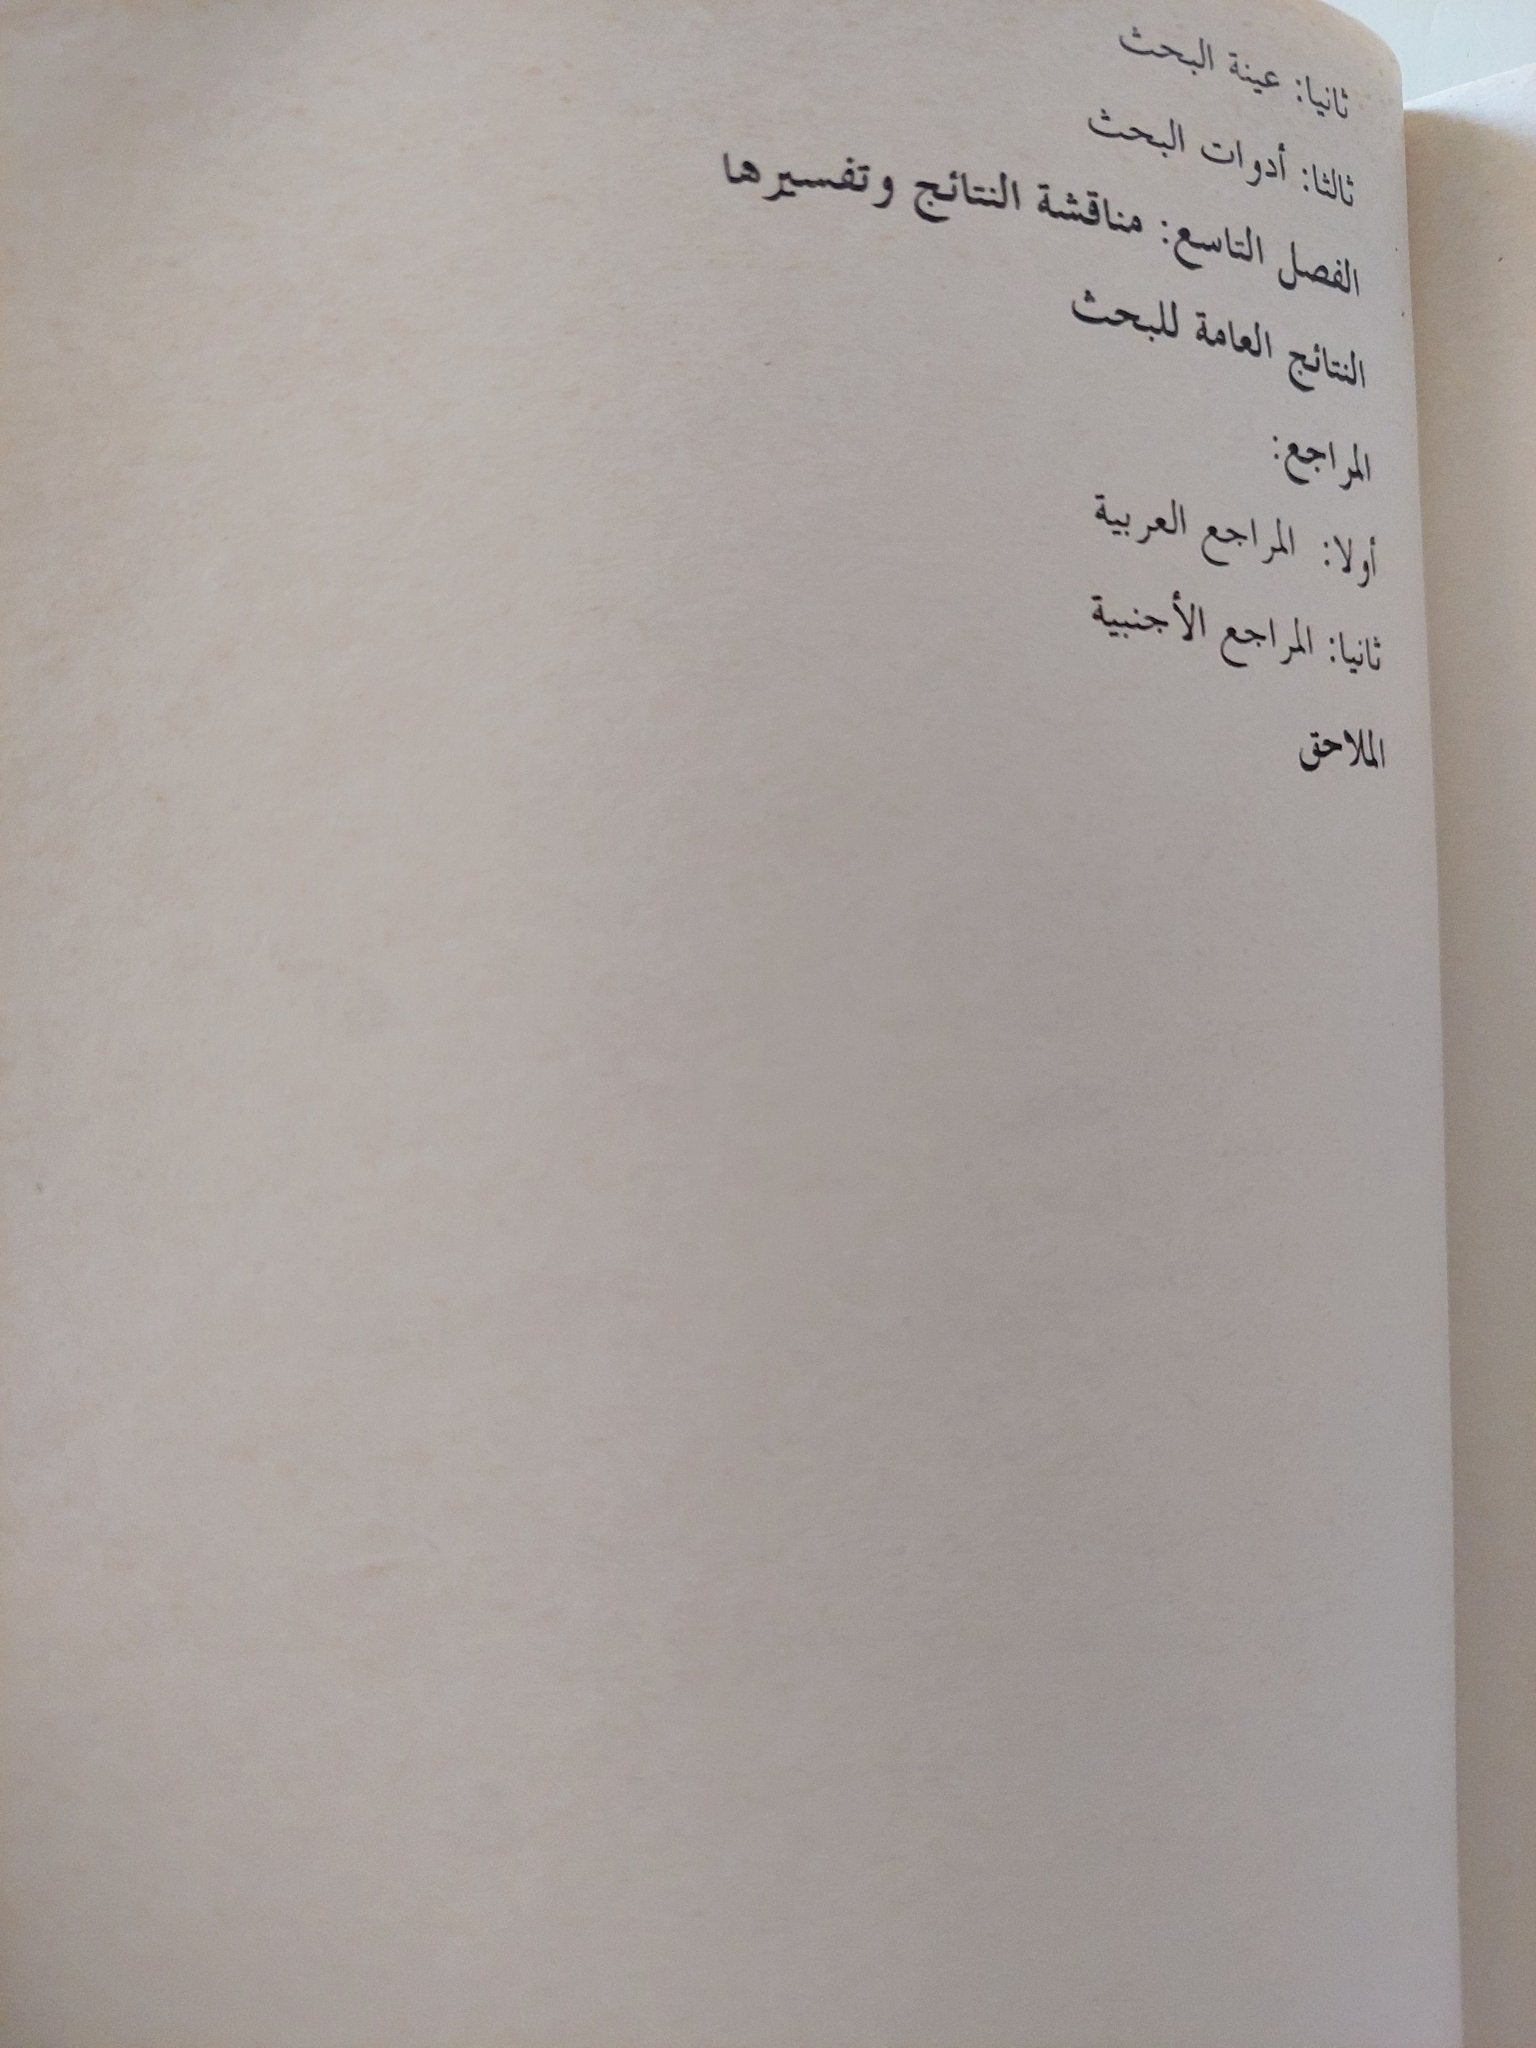 ثانيا: عينة البحث
ثالثا: أدوات البحث
الفصل التاسع: مناقشة النتائج وتفسيرها
النتائج العامة للبحث
المراجع:
أولا: المراجع العربية
ثانيا: المراجع الأجنبية
الملاحق